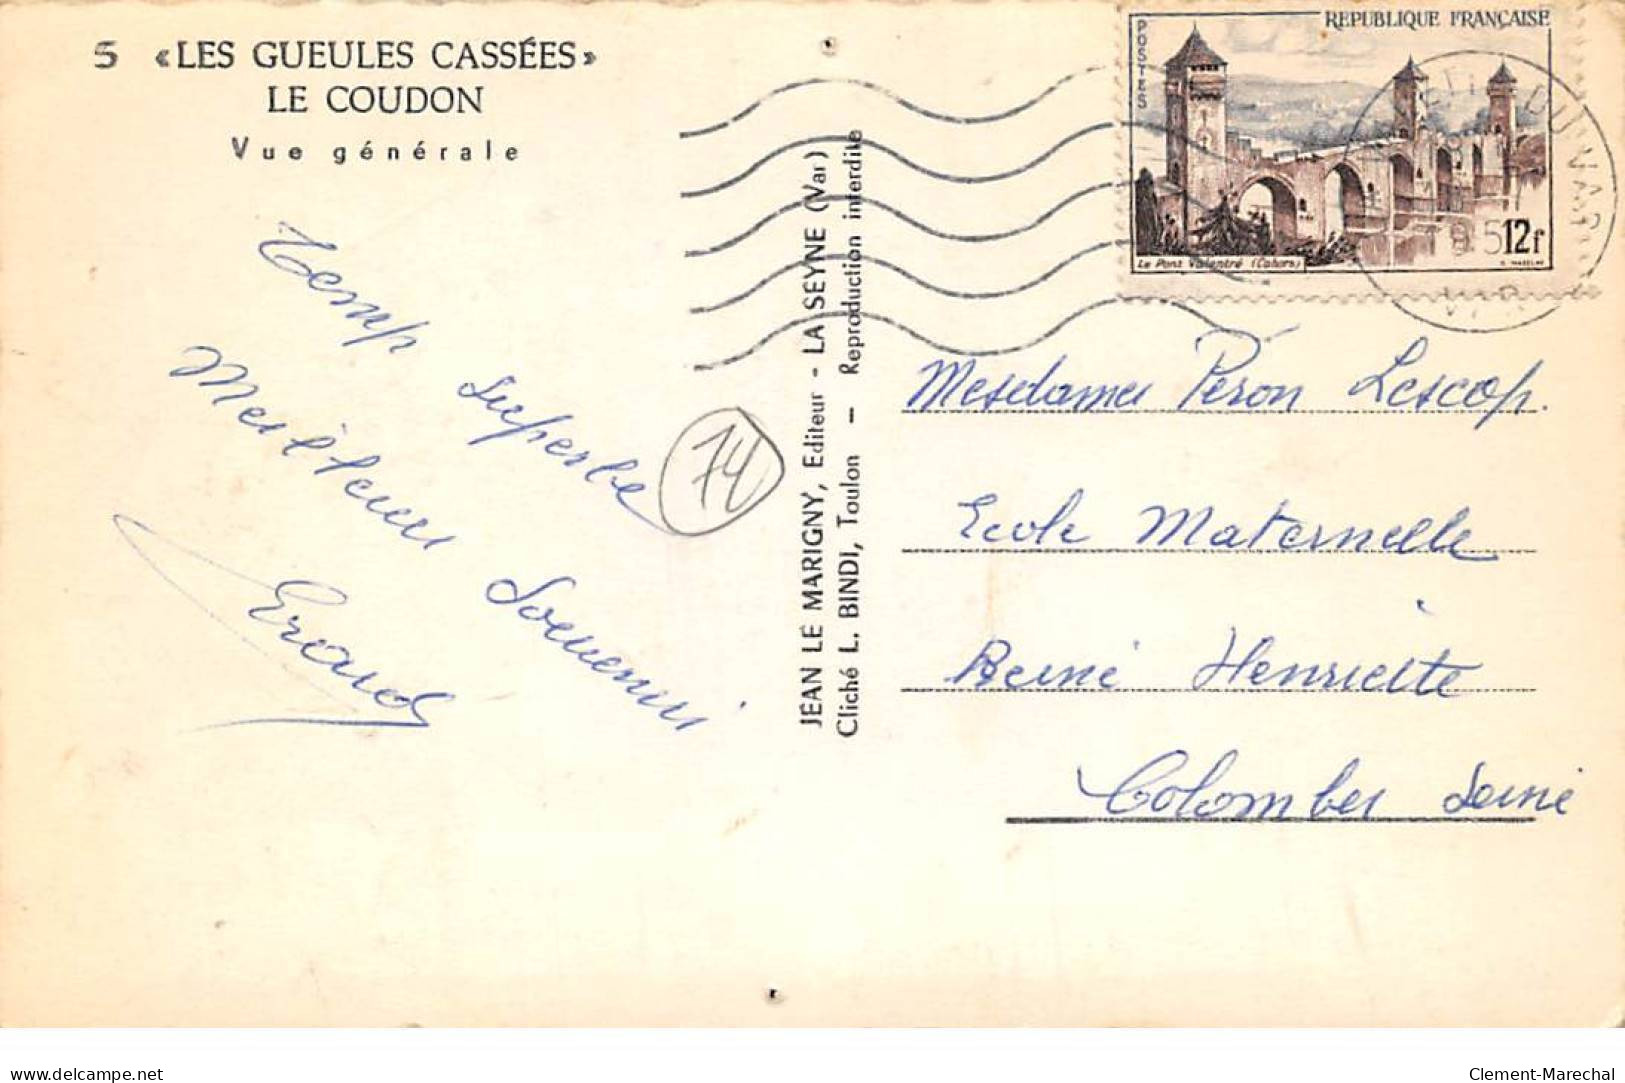 5 «LES GUEULES CASSÉES»
LE COUDON
Vue générale
Temp superbe
Meilleur Souvenir
JEAN LE MARIGNY, Editeur - LA SEYNE (Var)
Cliché L. BINDI, Toulon - Reproduction interdite
74
REPUBLIQUE FRANÇAISE
POSTES
12f
Le Pont Valentré (Cahors)
DU VAR
VAR
Mesdames Péron Lescop.
Ecole Maternelle
Reine Henriette
Colombes Seine
delcampe.net
Clement-Marechal